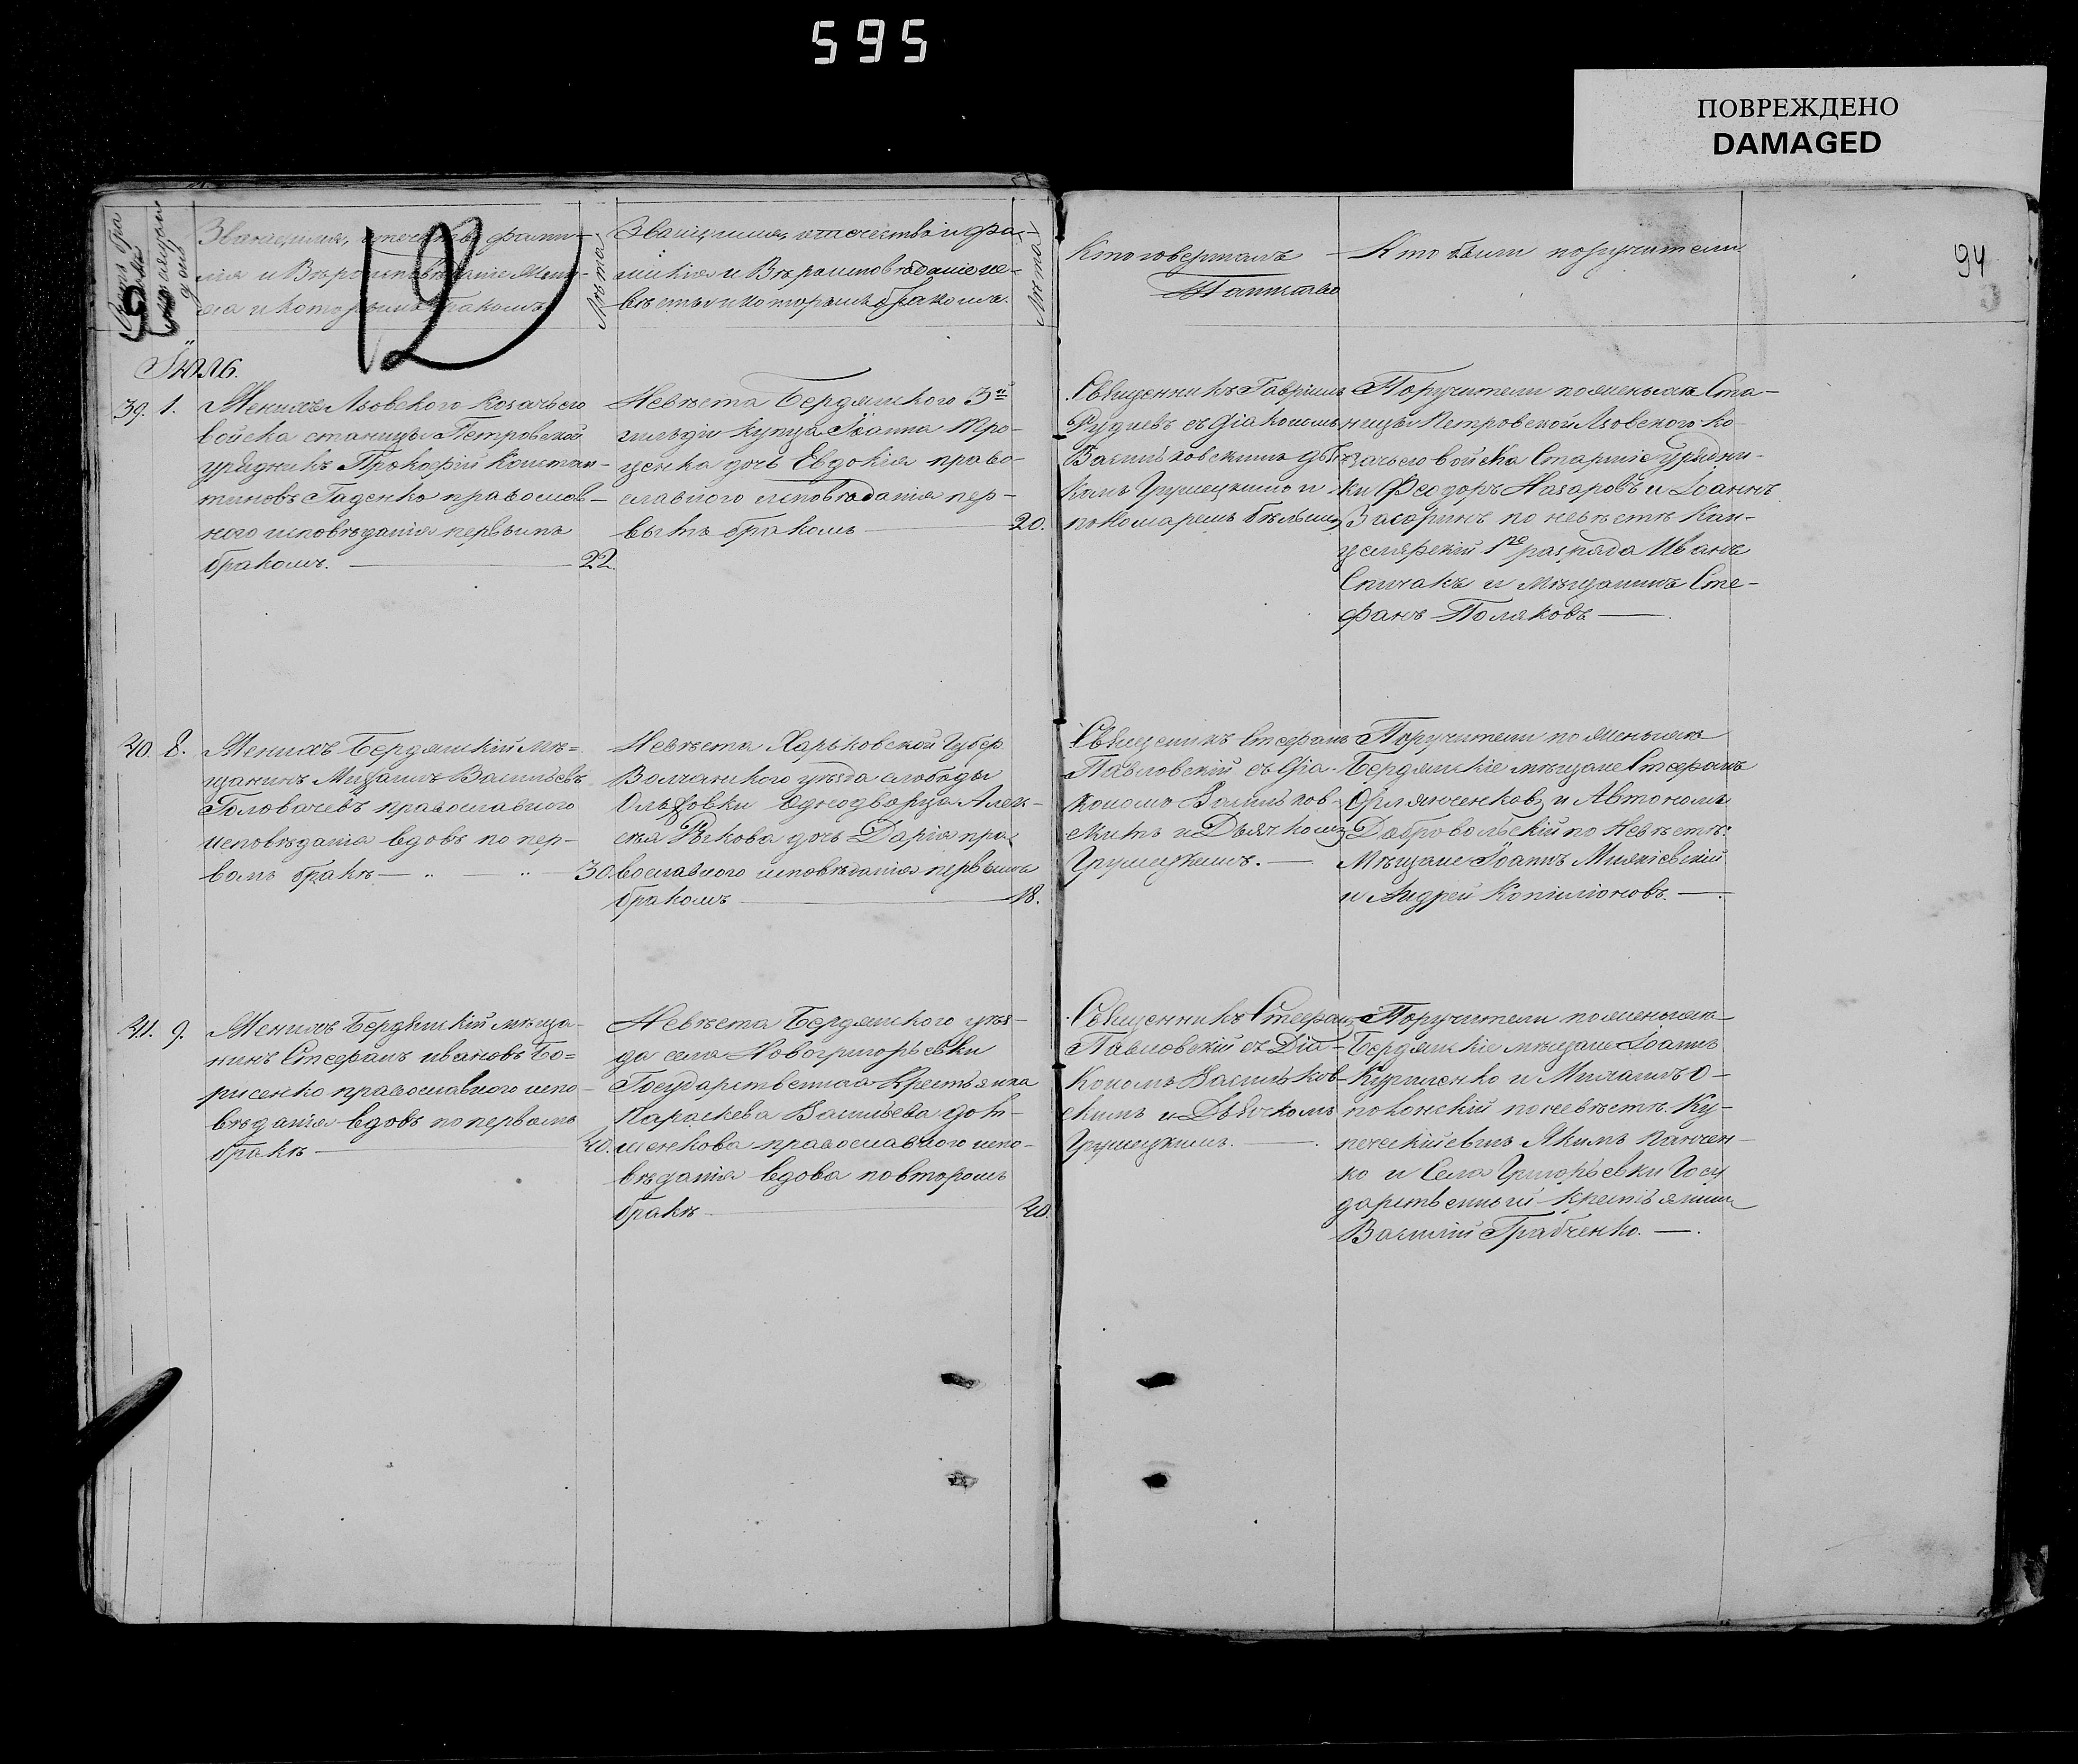 595
ПОВРЕЖДЕНО
DAMAGED
94
12
Званіе, имя, отечество, фами-
лія и Вѣроисповѣданіе Жени-
ха и которымъ бракомъ
Лѣта
Званіе, имя, отечество и фа-
милія и Вѣроисповѣданіе не-
вѣсты и которымъ бракомъ.
Лѣта
Кто совершалъ
Таинство
Кто были поручители
Іюль.
39. 1.
Женихъ Азовского Козачьего
войска станицы Петровской
урядникъ Прокофій Констан-
тиновъ Гаденко православ-
ного исповѣданія первымъ
бракомъ. 22.
Невѣста Бердянского 3й
гильдіи купца Іоанна Про-
ценка дочь Евдокія право-
славного исповѣданія пер-
вымъ бракомъ 20.
Священникъ Гавріилъ
Рудневъ съ діакономъ
Васильковскимъ дья-
комъ Грушецкимъ и
пономаремъ
Поручители по женихѣ Ста-
ницы Петровской Азовского Ко-
зачьего войска Старшіе урядни-
ки Феодоръ Назаровъ и Іоаннъ
по невѣстѣ Кан-
целярскій 1го разряда Иванъ
Спичакъ и мѣщанинъ Сте-
фанъ Поляковъ
40. 8.
Женихъ Бердянскій мѣ=
щанинъ Михаилъ Васильевъ
Головачевъ православного
исповѣданія вдовъ по пер-
вомъ бракѣ 30.
Невѣста Харьковской Губер
Волчанского уѣзда слободы
Ольховки Однодворца Алек-
сѣя Рыкова дочь Дарія пра
вославного исповѣданія первымъ
бракомъ 18.
Священникъ Стефанъ
Павловскій съ діа-
кономъ Васильков-
скимъ и Дьячкомъ
Грушецкимъ.
Поручители по женихѣ
Бердянскіе мѣщане Стефанъ
и Автономъ
Добровольскій по Невѣстѣ:
Мѣщане Іоаннъ
и Андрей
41. 9.
Женихъ Бердянскій мѣща-
нинъ Стефанъ ивановъ Бо=
рисенко православного испо-
вѣданія вдовъ по первомъ
бракѣ 40.
Невѣста Бердянского уѣз-
да села Новогригорьевки
Государственная Крестьянка
Параскева Васильева
православного испо-
вѣданія вдова по второмъ
бракѣ 40.
Священникъ Стефанъ
Павловскій съ Діа-
кономъ Васильков-
скимъ и Дьячкомъ
Грушецкимъ.
Поручители по женихѣ
Бердянскіе мѣщане Іоаннъ
и Михаилъ О-
по невѣстѣ. Ку-
печескій сынъ Якимъ Панчен-
ко и Села Григорьевки Госу
дарственный крестьянинъ
Василій Грабченко.